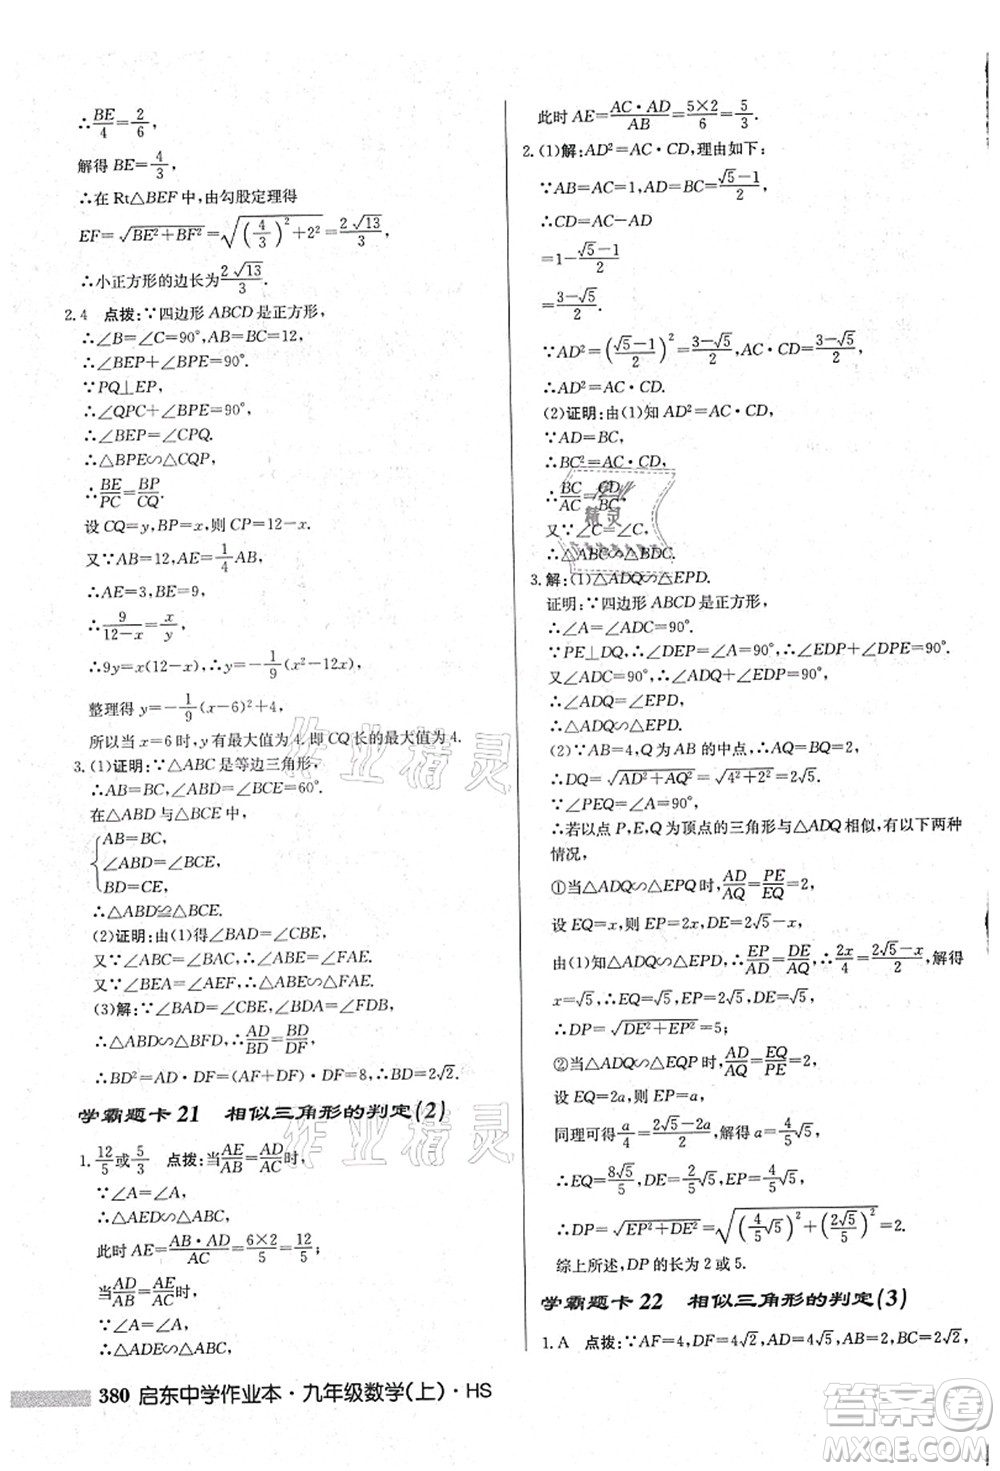 ∴BE/4=2/6,
解得 BE=4/3,
∴在 Rt△BEF 中,由勾股定理得
EF=√(BE²+BF²)=√((4/3)²+2²)=2√13/3.
∴小正方形的边长为2√13/3.
2.4 点拨:∵四边形 ABCD 是正方形,
∴∠B=∠C=90°,AB=BC=12,
∴∠BEP+∠BPE=90°.
∵PQ⊥EP,
∴∠QPC+∠BPE=90°,
∴∠BEP=∠CPQ.
∴△BPE∽△CQP.
∴BE/PC=BP/CQ.
设 CQ=y,BP=x,则 CP=12-x.
又∵AB=12,AE=1/4AB,
∴AE=3,BE=9,
∴9/(12-x)=x/y
∴9y=x(12-x),y=-1/9(x²-12x)
整理得 y=-1/9(x-6)²+4,
所以当 x=6时,y 有最大值为 4.即 CQ长的最大值为4.
3.(1)证明:∵△ABC是等边三角形,
∴AB=BC,∠ABD=∠BCE=60°.
在△ABD与△BCE中,
{AB=BC,
∠ABD=∠BCE,
BD=CE,
∴△ABD≌△BCE.
(2)证明:由(1)得∠BAD=∠CBE,
又∵∠ABC=∠BAC,∴∠ABE=∠EAF.
又∵∠BEA=∠AEF,∴△EAF∽△EBA.
(3)解:∵∠BAD=∠CBE,∠BDA=∠FDB,
∴△ABD∽△BFD,∴AD/BD=BD/DF
∴BD²=AD·DF=(AF+DF)·DF=8,∴BD=2√2.
学霸题卡 21 相似三角形的判定(2)
1.12/5或5/3 点拨:当AE/AB=AD/AC时,
∵∠A=∠A,
∴△AED∽△ABC,
此时 AE=AB·AD/AC=6×2/5=12/5;
当AD/AB=AE/AC时,∵∠A=∠A,
∴△ADE∽△ABC,
此时 AE=AC·AD/AB=5×2/6=5/3.
2.(1)解:AD²=AC·CD,理由如下:
∵AB=AC=1,AD=BC=(√5-1)/2,
∴CD=AC-AD
=1-(√5-1)/2
=(3-√5)/2.
∵AD²=((√5-1)/2)²=(3-√5)/2,AC·CD=(3-√5)/2,
∴AD²=AC·CD.
(2)证明:由(1)知 AD²=AC·CD,
∵AD=BC,
∴BC²=AC·CD,
∴BC/AC=CD/BC.
又∵∠C=∠C,
∴△ABC∽△BDC.
3.解:(1)△ADQ∽△EPD.
证明:∵四边形 ABCD是正方形,
∴∠A=∠ADC=90°.
∵PE⊥DQ,∴∠PED=∠A=90°,∠EDP+∠DPE=90°.
又∠ADQ+∠EDP=90°,
∴∠ADQ=∠DPE.
∴△ADQ∽△EPD.
(2)∵AB=4,Q为AB的中点,
∴DQ=√(AD²+AQ²)=√(4²+2²)=2√5.
∵∠PEQ=∠A=90°,
∴若以点 P,E,Q为顶点的三角形与△ADQ相似,有以下两种
情况,
①当△ADQ∽△EPQ时,AD/AQ=PE/EQ=2,
设 EQ=x,则 EP=2x,DE=2√5-x,
由(1)知△ADQ∽△EPD,∴EP/AD=DE/AQ,∴2x/4=(2√5-x)/2,解得
x=√5,
∴DP=√(DE²+EP²)=5;
②当△ADQ∽△EQP时,AD/AQ=EQ/EP=2,
设 EQ=2a,则 EP=a,
同理可得a/4=(2√5-2a)/2,解得 a=4√5/5,
∴EQ=8√5/5,DE=2√5/5,
∴DP=√(EP²+DE²)=√((4/5√5)²+(2√5/5)²)=2.
综上所述,DP的长为2或5.
学霸题卡 22 相似三角形的判定(3)
1.A 点拨:∵AF=4,DF=4√2,AB=2,BC=2√2,
380 启东中学作业本·九年级数学(上)·HS
作业精灵
作业精灵
精灵
答案圈
MXQE.COM